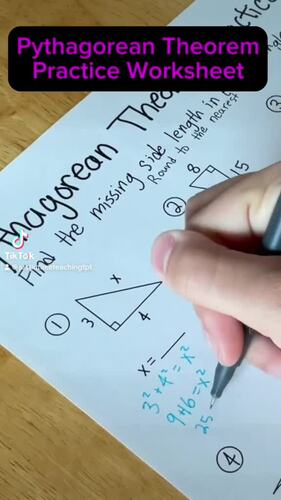 Pythagorean Theorem
Practice Worksheet
Find the missing side length in
Round to the nearest
TikTok
①
x
3
4
x = ___
3² + 4² = x²
9 + 16 = x²
25
②
8
15
③
④